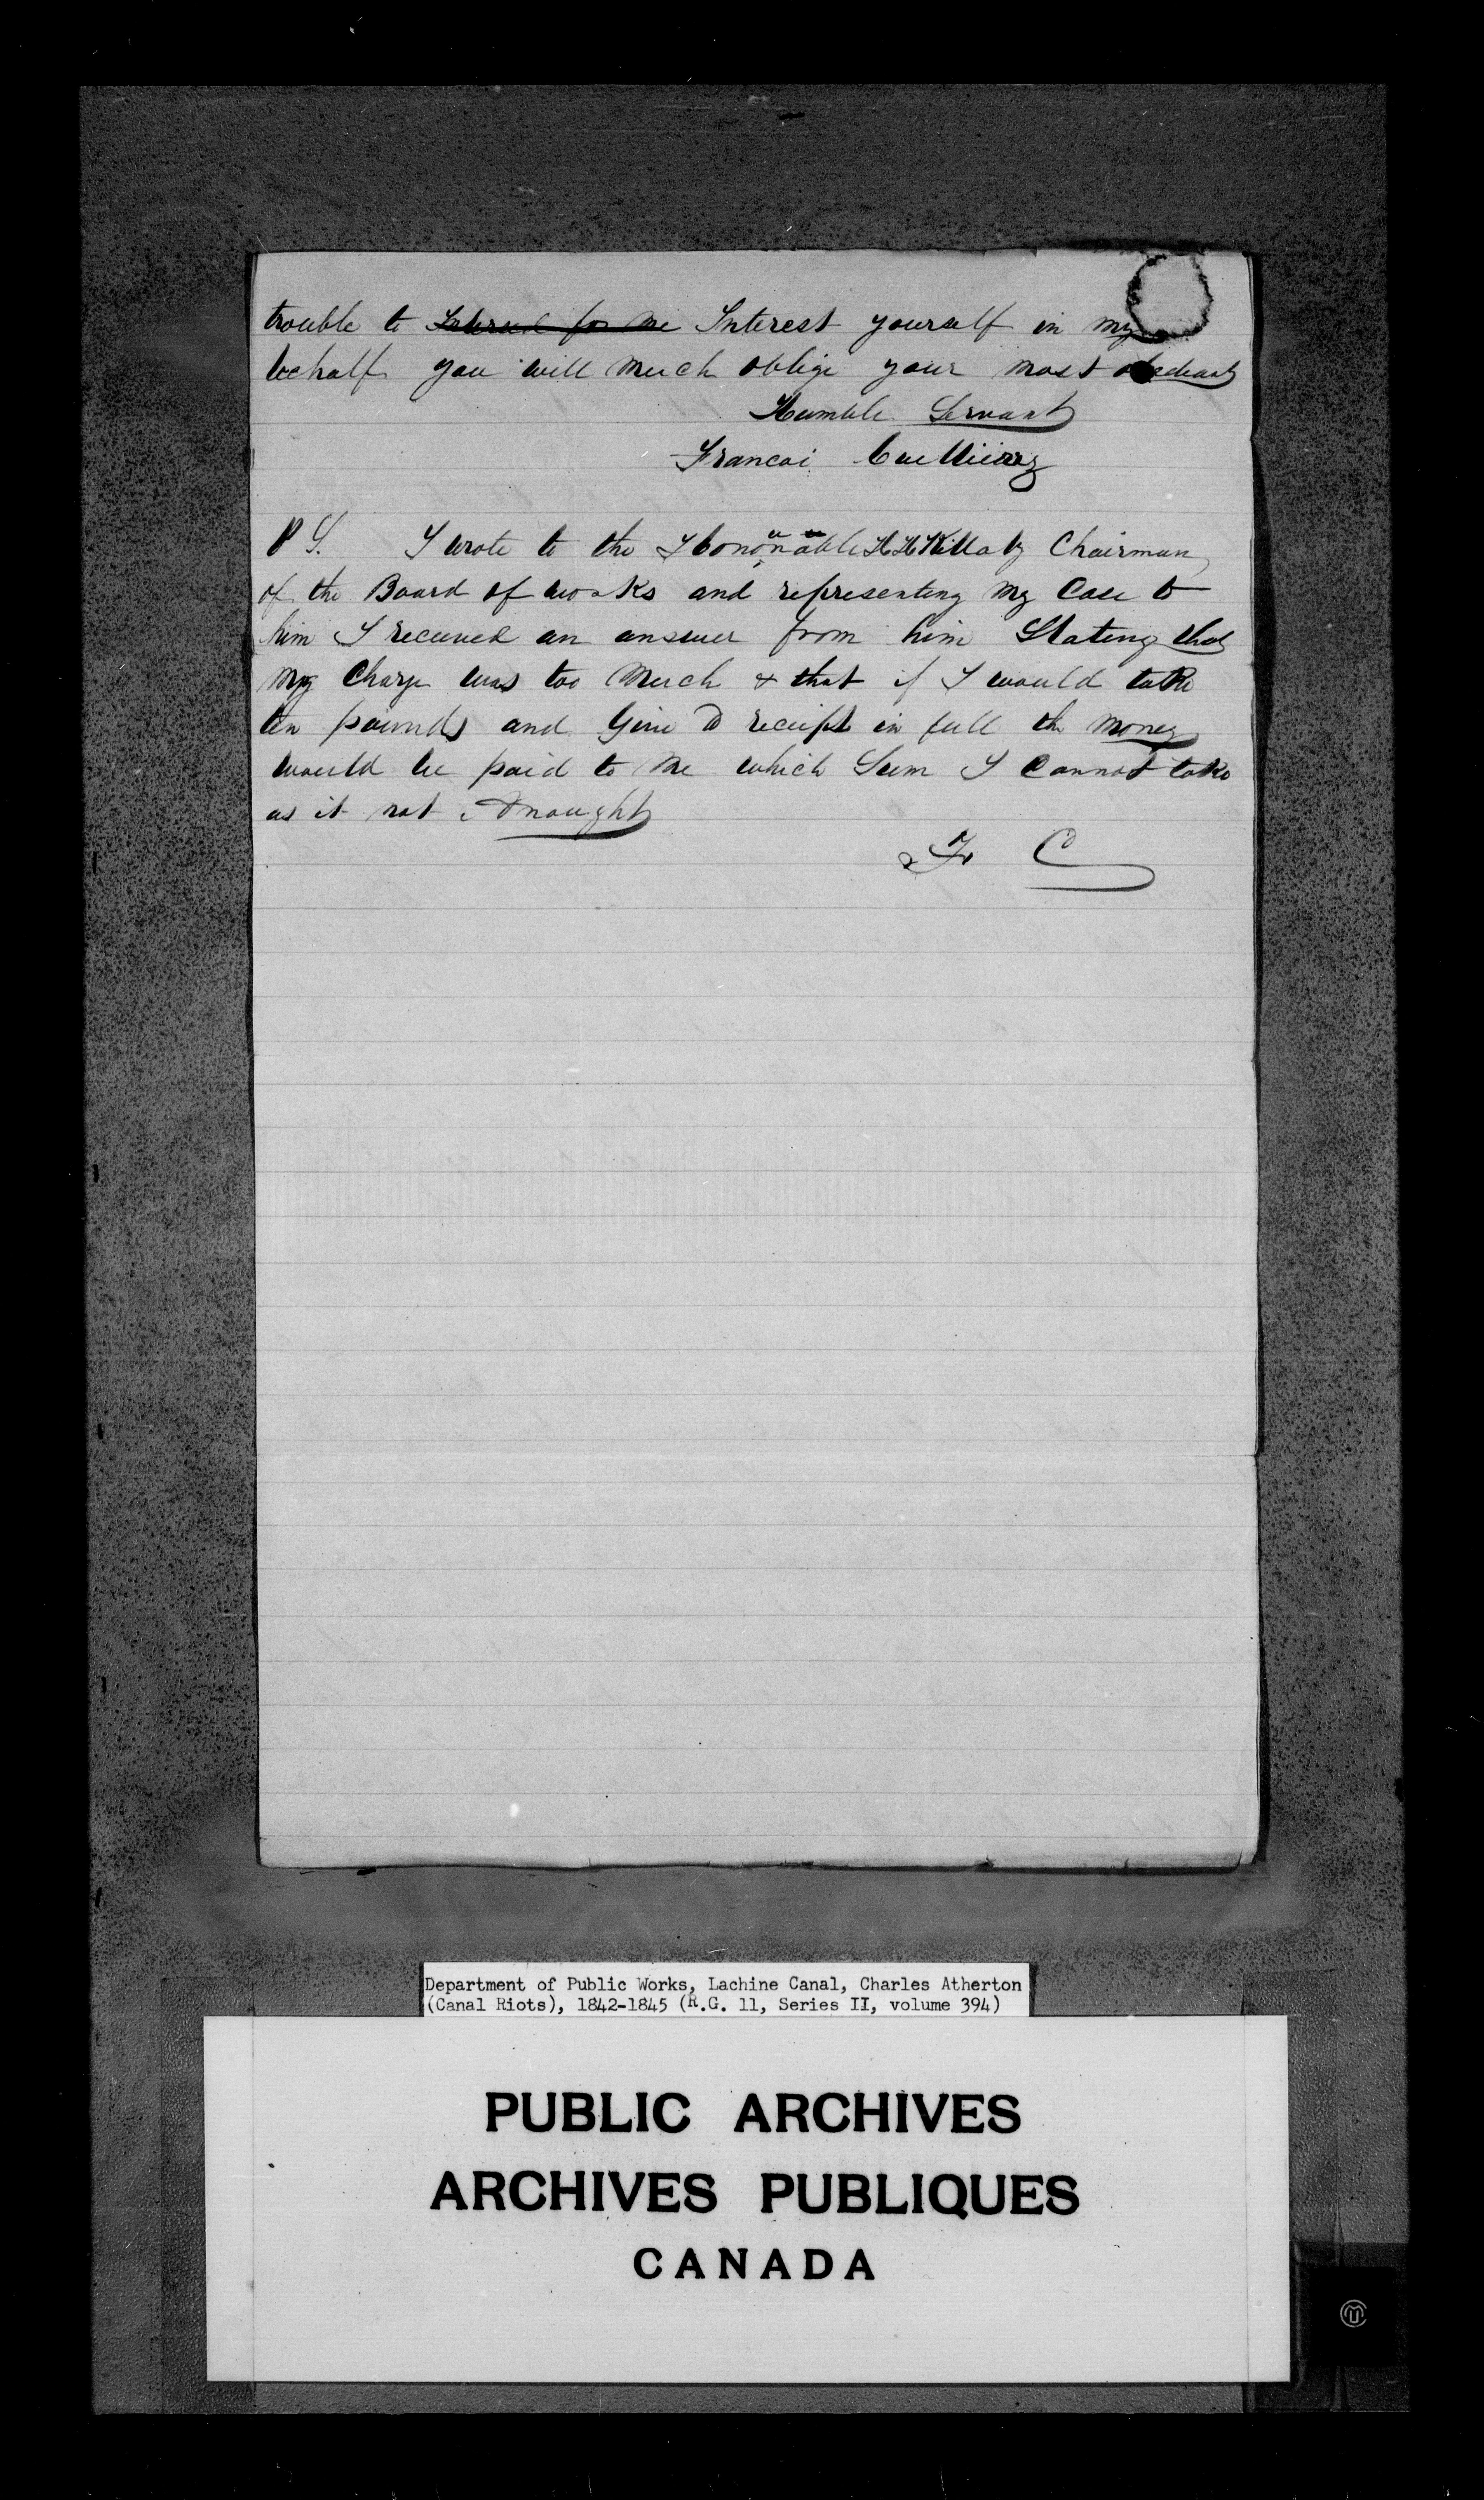 trouble to Interest yourself in my
behalf you will much oblige your most obediant
Humble Servant
Francoi Cuelliierz
P S. I wrote to the Honourable H H Killaly Chairman
of the Board of works and representing my Case to
him I received an answer from him Stating that
my Charge was too Much & that if I would take
ten pounds and Give a receipt in full the money
would be paid to Me which Sum I Cannot take
as it not Enought
F C
Department of Public Works, Lachine Canal, Charles Atherton
(Canal Riots), 1842-1845 (R.G. 11, Series II, volume 394)
PUBLIC ARCHIVES
ARCHIVES PUBLIQUES
CANADA